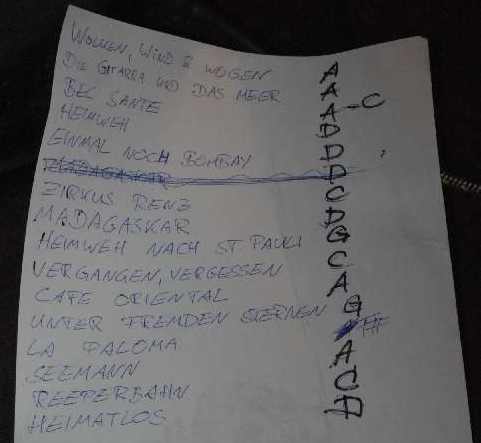 WOLKEN, WIND & WOGEN
DIE GITARRA UND DAS MEER
BEL SANTE
HEIMWEH
EINMAL NOCH BOMBAY
MADAGASKAR
ZIRKUS RENZ
MADAGASKAR
HEIMWEH NACH ST PAULI
VERGANGEN, VERGESSEN
CAFE ORIENTAL
UNTER FREMDEN STERNEN
LA PALOMA
SEEMANN
REEPERBAHN
HEIMATLOS
A
A
A -C
D
D
D
C
D
G
C
A
G
A
C